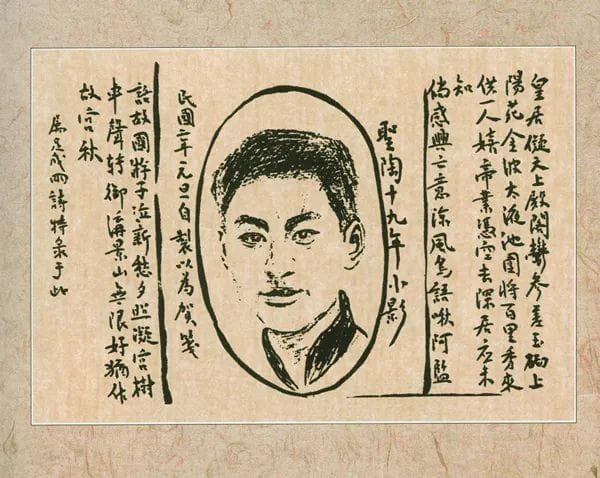 皇居儗天上殿閣鬱參差玉砌上
陽花金波太液池園將百里秀來
供一人嬉帝業憑空去深居應未
知
倘感興亡意涼風鳥語啾阿監
聖陶十九年小影
民國二年元旦自製以為賀箋
語故國游子泣新愁夕照凝宮樹
車聲轉御溝景山無限好猶作
故宮秋
詩特錄于此